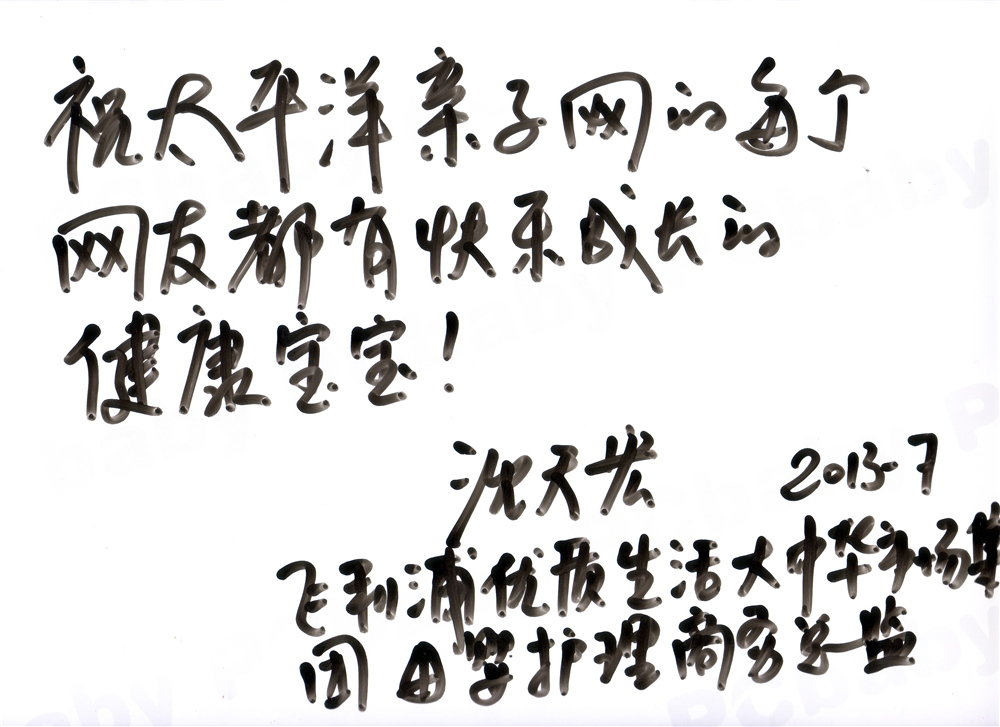 祝太平洋亲子网的每个
网友都有快乐成长的
健康宝宝!
沈天宏 2013.7
飞利浦优质生活大中华市场集
团母婴护理商务总监